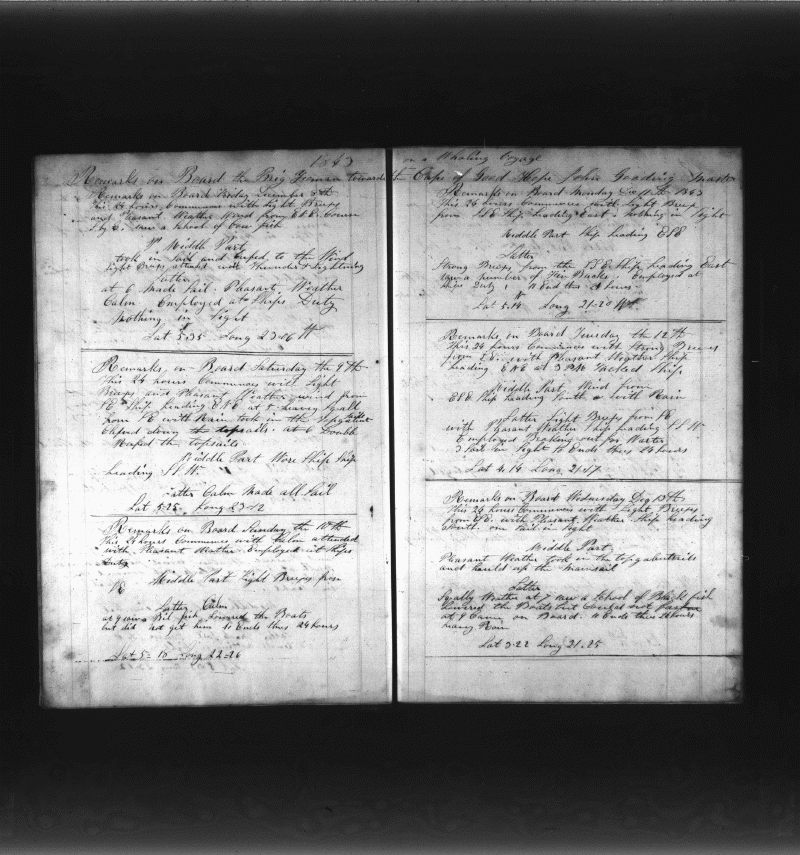 1843
Remarks on Board the Brig towards
Remarks on Board Friday 8th
This 24 hours Commences with Light Breeps
and Pleasant Weather Wind from ESE Course
S by E. saw a School of Cow fish
Middle Part
took in Sail and to the Wind
Light Breeps attend with Thunder & Lightning
Latter
at 6 Made Sail. Pleasant Weather
Calm Employed at Ships Duty
Nothing in Sight
Lat 5=35 Long 23=06 W
Remarks on Board Saturday the 9th
This 24 hours Commences with Light
Breeps and Pleasant Weather wind from
Ship heading ENE at 5 heavy Squall
from with Rain took in the topgallant
sails at 6 Double
Reaped the topsails
Middle Part Wore Ship Ship
heading S.W
Latter Calm Made all Sail
Lat 5=25 Long 23=12
Remarks on Board Sunday the 10th
This 24 hours Commences with Calm attended
with Pleasant Weather. Employed at Ships
Duty
Middle Part Light Breeps from
Latter Calm
fish Lowered the Boats
but did not get him So Ends thees 24 hours
Lat 5=18 Long 22=26
on a Whaling Voyage
Cape of Good Hope John Gooding Master
Remarks on Board Monday Dec 11th 1843
This 24 hours Commences with Light Breeps
from SSE Ship heading East. nothing in Sight
Middle Part Ship heading ESE
Latter
Strong Breeps from the Ship heading East
Saw a number of Fin Backs Employed at
Ships Duty So Ends this 24 hours
Lat 5=14 Long 21=20 W
Remarks on Board Tuesday the 12th
This 24 hours Commences with Strong Breeps
from S.E. with Pleasant Weather Ship
heading ENE at 3 PM Tacked Ship
Middle Part Wind from
ESE Ship heading South with Rain
Latter Light Breeps from
with Pleasant Weather Ship heading SSW
Employed Breaking out for Water
3 Sail in Sight So Ends thees 24 hours
Lat 4.14 Long 21=57
Remarks on Board Wednesday Dec 13th
This 24 hours Commences with Light Breeps
from SE. with Pleasant Weather Ship heading
South. one Sail in Sight
Middle Part
Pleasant Weather took in the topgalantsails
and hauld up the Mainsail
Latter
Squaly Wather at 7 saw a School of Black fish
Lowered the Boats but Could not
at 9 Came on Board. So Ends thees 24 hours
heavy Rain
Lat 3=22 Long 21.25